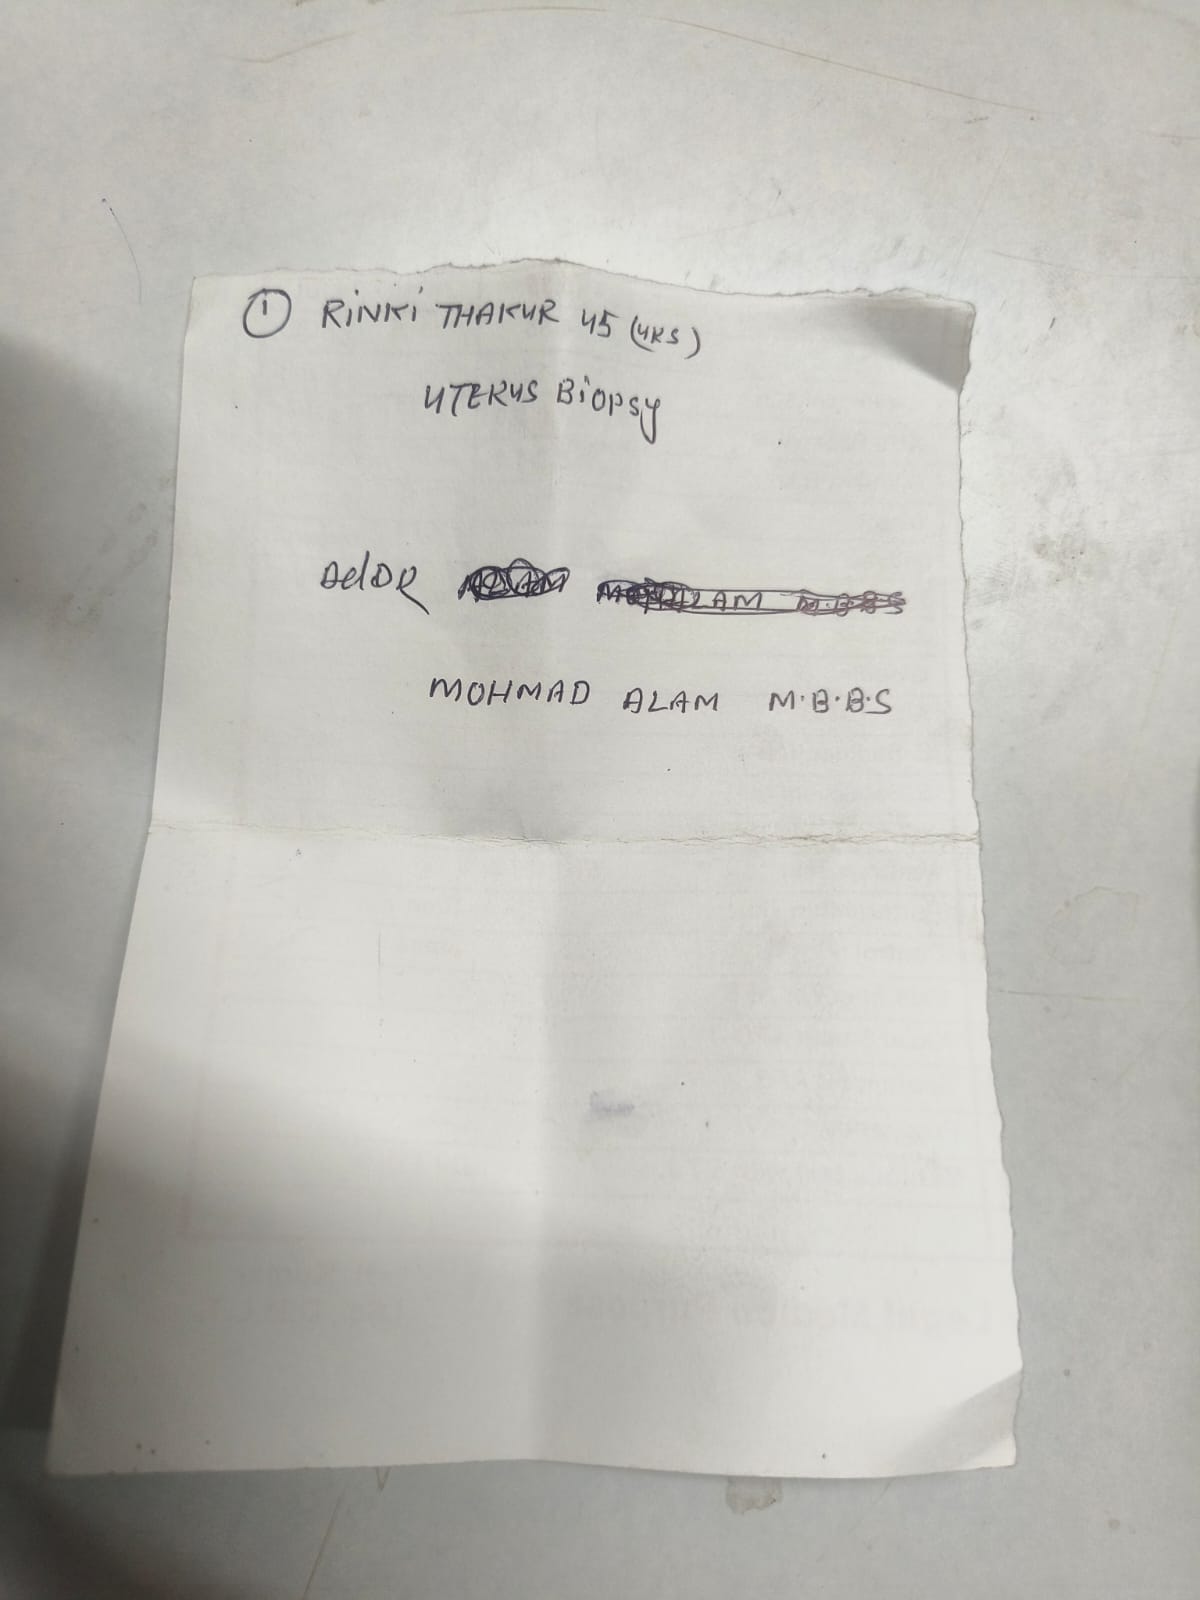 ① RiNKi THAKUR 45 (YRS)
UTERUS Biopsy
MOHMAD ALAM M.B.B.S